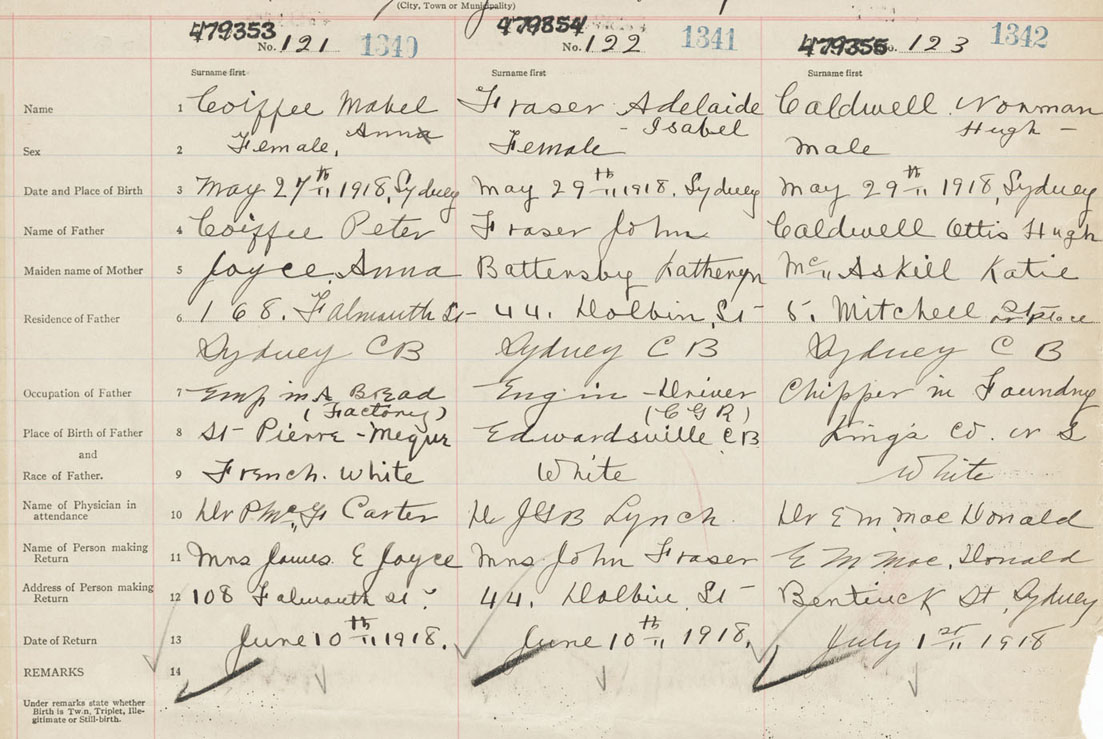 (City, Town or Municipality)
479353 479354 479355
No. 121 1340 No. 122 1341 No. 123 1342
Surname first Surname first Surname first
Name 1 Coiffee Mabel Fraser Adelaide Caldwell Norman
Anna - Isabel Hugh -
Sex 2 Female, Female male
Date and Place of Birth 3 May 27th 1918, Sydney May 29th 1918. Sydney May 29th 1918, Sydney
Name of Father 4 Coiffee Peter Fraser John Caldwell Ottis Hugh
Maiden name of Mother 5 Joyce Anna Battersby Katheryn Mc Askill Katie
Residence of Father 6 168. Falmouth St 44. Dolbin St 5. Mitchell Place
Sydney CB Sydney CB Sydney CB
Occupation of Father 7 Emp in A Bread Engin - Driver Chipper in Foundry
(Factory) (C G R)
Place of Birth of Father 8 St Pierre - Edwardsville CB King's Co. N S
and
Race of Father. 9 French. White White White
Name of Physician in attendance 10 Dr Carter Dr JGB Lynch. Dr E M Mac Donald
Name of Person making Return 11 Mrs James E Joyce Mrs John Fraser E M Mac. Donald
Address of Person making Return 12 108 Falmouth St. 44. Dolbin St Bentinck St, Sydney
Date of Return 13 June 10th 1918. June 10th 1918. July 1st 1918
REMARKS 14
Under remarks state whether
Birth is Twin, Triplet, Ille-
gitimate or Still-birth.